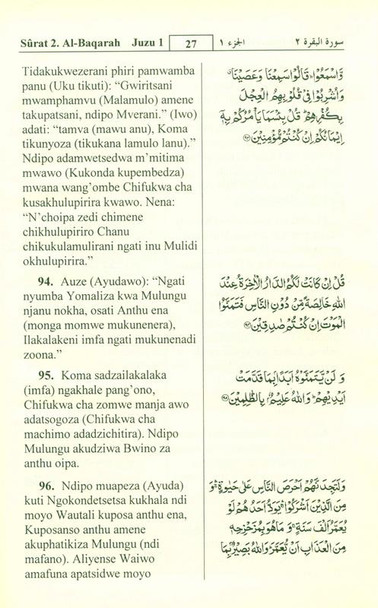 Sûrat 2. Al-Baqarah Juzu 1
27
الجزء ١
سورة البقرة ٢
Tidakukwezerani phiri pamwamba
panu (Uku tikuti): “Gwiritsani
mwamphamvu (Malamulo) amene
takupatsani, ndipo Mverani.” (Iwo)
adati: “tamva (mawu anu), Koma
tikunyoza (tikukana lamulo lanu).”
Ndipo adamwetsedwa m’mitima
mwawo (Kukonda kupembedza)
mwana wang’ombe Chifukwa cha
kusakhulupirira kwawo. Nena:
“N’choipa zedi chimene
chikhulupiriro Chanu
chikukulamulirani ngati inu Mulidi
okhulupirira.”
94. Auze (Ayudawo): “Ngati
nyumba Yomaliza kwa Mulungu
njanu nokha, osati Anthu ena
(monga momwe mukunenera),
Ilakalakeni imfa ngati mukunenadi
zoona.”
95. Koma sadzailakalaka
(imfa) ngakhale pang’ono,
Chifukwa cha zomwe manja awo
adatsogoza (Chifukwa cha
machimo adadzichitira). Ndipo
Mulungu akudziwa Bwino za
anthu oipa.
96. Ndipo muapeza (Ayuda)
kuti Ngokondetsetsa kukhala ndi
moyo Wautali kuposa anthu ena,
Kuposanso anthu amene
akuphatikiza Mulungu (ndi
mafano). Aliyense Waiwo
amafuna apatsidwe moyo
وَّاسْمَعُوا۟ قَالُوا۟ سَمِعْنَا وَعَصَيْنَا
وَأُشْرِبُوا۟ فِى قُلُوبِهِمُ الْعِجْلَ
بِكُفْرِهِمْ قُلْ بِئْسَمَا يَأْمُرُكُم بِهِۦٓ
إِيمَانُكُمْ إِن كُنتُم مُّؤْمِنِينَ ٩٣
قُلْ إِن كَانَتْ لَكُمُ الدَّارُ الْأَخِرَةُ عِندَ
اللَّهِ خَالِصَةً مِّن دُونِ النَّاسِ فَتَمَنَّوُا
الْمَوْتَ إِن كُنتُمْ صَٰدِقِينَ ٩٤
وَلَن يَتَمَنَّوْهُ أَبَدًۢا بِمَا قَدَّمَتْ
أَيْدِيهِمْ وَاللَّهُ عَلِيمٌۢ بِالظَّٰلِمِينَ ٩٥
وَلَتَجِدَنَّهُمْ أَحْرَصَ النَّاسِ عَلَىٰ حَيَوٰةٍ وَ
مِنَ الَّذِينَ أَشْرَكُوا۟ يَوَدُّ أَحَدُهُمْ لَوْ
يُعَمَّرُ أَلْفَ سَنَةٍ وَمَا هُوَ بِمُزَحْزِحِهِۦ
مِنَ الْعَذَابِ أَن يُعَمَّرَ وَاللَّهُ بَصِيرٌۢ بِمَا